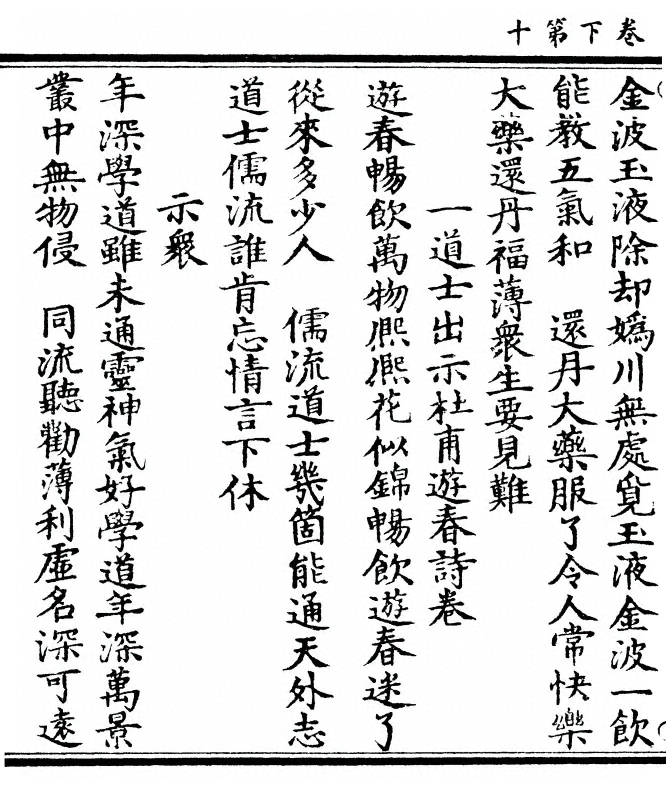 卷下第十
金波玉液除却嬀川無處覓玉液金波一飮
能教五氣和　還丹大藥服了令人常快樂
大藥還丹福薄衆生要見難
一道士出示杜甫遊春詩卷
遊春暢飮萬物熈熈花似錦暢飮遊春迷了
從來多少人　儒流道士幾箇能通天外志
道士儒流誰肯忘情言下休
示衆
年深學道雖未通靈神氣好學道年深萬景
叢中無物侵　同流聽勸薄利虛名深可遠